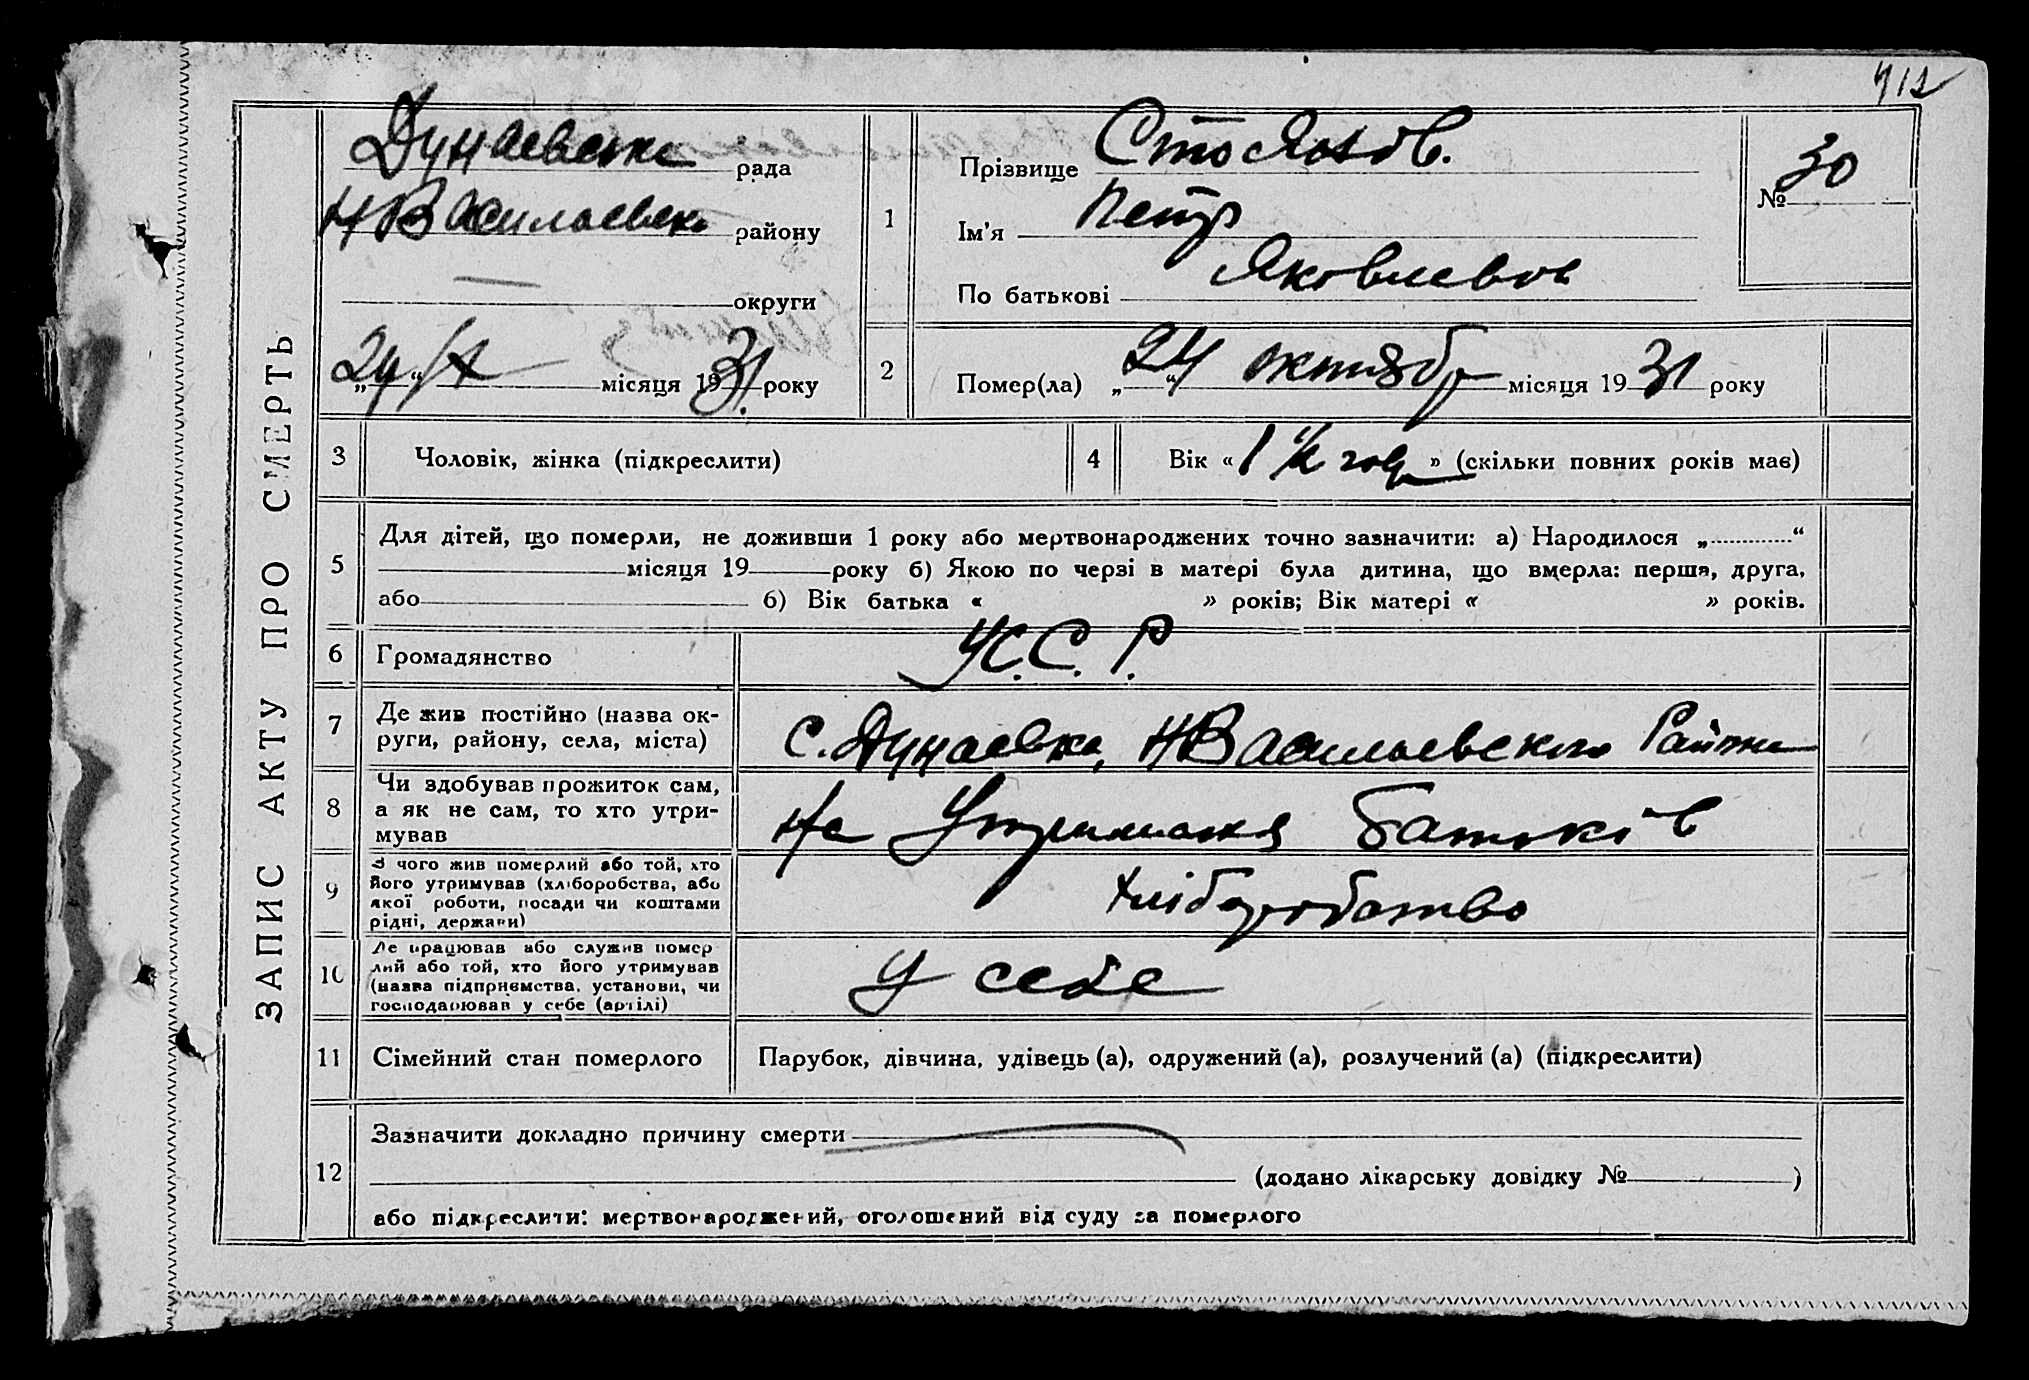 712
ЗАПИС АКТУ ПРО СМЕРТЬ
Дунаевська рада
НВасильевськ району
— округи
„24“ X місяця 1931 року
1
Прізвище Стоянов.
Ім'я Петр
По батькові Яковлевич
№ 30
2
Помер(ла) „24“ октябр місяця 1931 року
3
Чоловік, жінка (підкреслити)
4
Вік « 1 ½ год » (скільки повних років має)
5
Для дітей, що померли, не доживши 1 року або мертвонароджених точно зазначити: а) Народилося „ “
місяця 19 року б) Якою по черзі в матері була дитина, що вмерла: перша, друга,
або б) Вік батька « » років; Вік матері « » років.
6
Громадянство
У.С.С.Р.
7
Де жив постійно (назва ок-
руги, району, села, міста)
с. Дунаевка, НВасильевского Району
8
Чи здобував прожиток сам,
а як не сам, то хто утри-
мував
На Утриманя батьків
9
З чого жив померлий або той, хто
його утримував (хліборобства, або
якої роботи, посади чи коштами
рідні, держави)
хліборобство
10
Де працював або служив помер
лий або той, хто його утримував
(назва підприємства, установи, чи
господарював у себе (артілі)
У себе
11
Сімейний стан померлого
Парубок, дівчина, удівець (а), одружений (а), розлучений (а) (підкреслити)
12
Зазначити докладно причину смерти
(додано лікарську довідку № )
або підкреслити: мертвонароджений, оголошений від суду за померлого